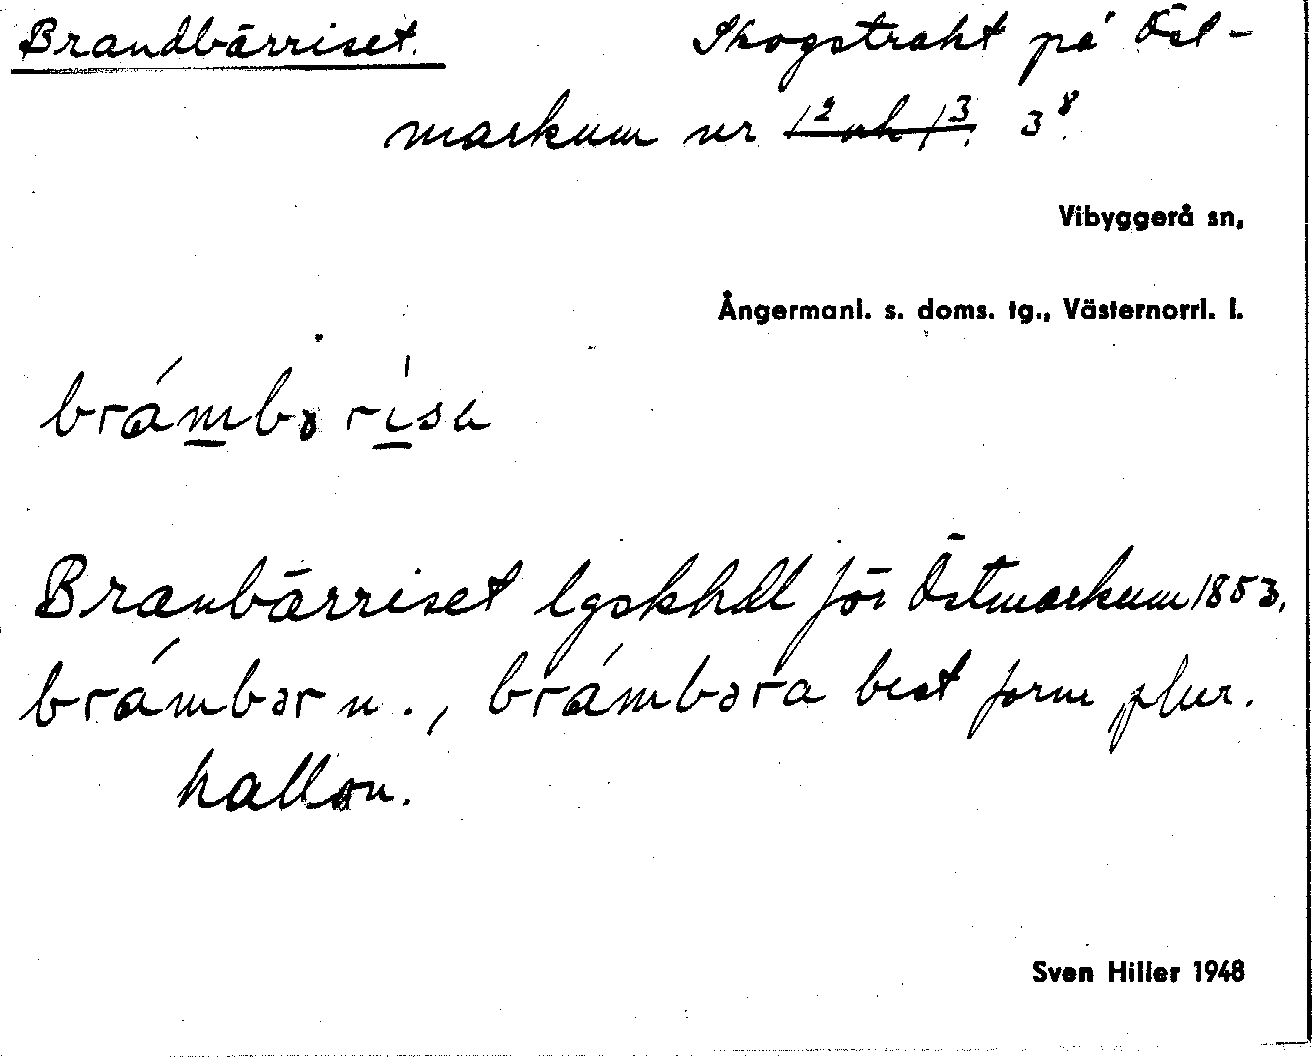 Brandbärriset. Skogstrakt på Öst-
markum nr 1² och 1³. 3⁸.
Vibyggerå sn,
Ångermanl. s. doms. tg., Västernorrl. l.
brámbərísa
Branbärriset lgskhdl för Östmarkum 1853.
brámbər n., brámbəra best form plur.
hallon.
Sven Hiller 1948